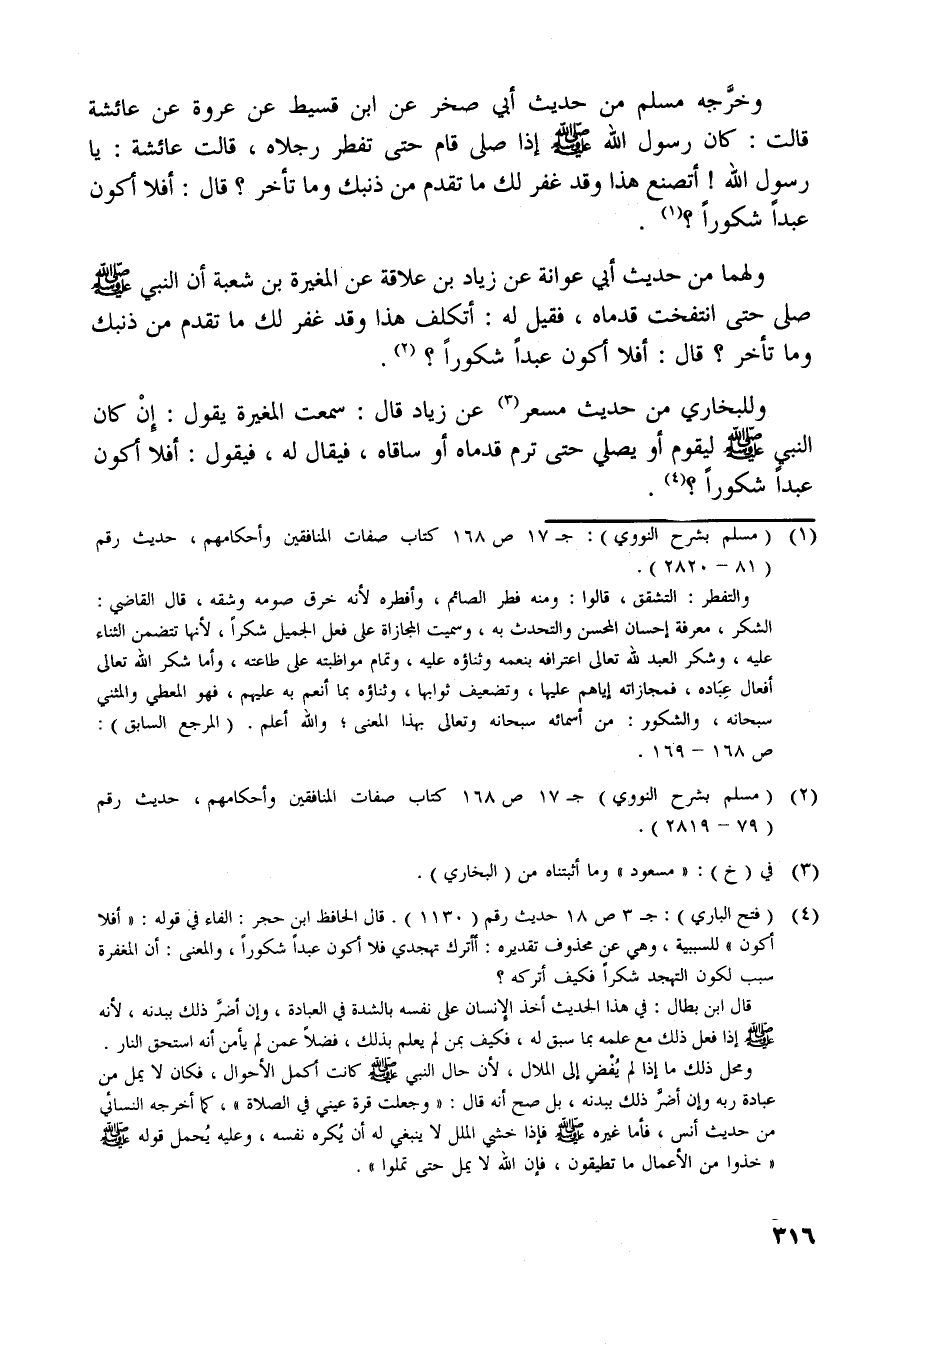 وخرَّجه مسلم من حديث أبي صخر عن ابن قسيط عن عروة عن عائشة
قالت : كان رسول الله ﷺ إذا صلى قام حتى تفطر رجلاه ، قالت عائشة : يا
رسول الله ! أتصنع هذا وقد غفر لك ما تقدم من ذنبك وما تأخر ؟ قال : أفلا أكون
عبداً شكوراً ؟(١) .
ولهما من حديث أبي عوانة عن زياد بن علاقة عن المغيرة بن شعبة أن النبي ﷺ
صلى حتى انتفخت قدماه ، فقيل له : أتكلف هذا وقد غفر لك ما تقدم من ذنبك
وما تأخر ؟ قال : أفلا أكون عبداً شكوراً ؟ (٢) .
وللبخاري من حديث مسعر(٣) عن زياد قال : سمعت المغيرة يقول : إنْ كان
النبي ﷺ ليقوم أو يصلي حتى ترم قدماه أو ساقاه ، فيقال له ، فيقول : أفلا أكون
عبداً شكوراً ؟(٤) .
(١) ( مسلم بشرح النووي ) : جـ ١٧ ص ١٦٨ كتاب صفات المنافقين وأحكامهم ، حديث رقم
( ٨١ – ٢٨٢٠ ) .
والتفطر : التشقق ، قالوا : ومنه فطر الصائم ، وأفطره لأنه خرق صومه وشقه ، قال القاضي :
الشكر ، معرفة إحسان المحسن والتحدث به ، وسميت المجازاة على فعل الجميل شكراً ، لأنها تتضمن الثناء
عليه ، وشكر العبد لله تعالى اعترافه بنعمه وثناؤه عليه ، وتمام مواظبته على طاعته ، وأما شكر الله تعالى
أفعال عِبَاده ، فمجازاته إياهم عليها ، وتضعيف ثوابها ، وثناؤه بما أنعم به عليهم ، فهو المعطي والمثني
سبحانه ، والشكور : من أسمائه سبحانه وتعالى بهذا المعنى ؛ والله أعلم . ( المرجع السابق ) :
ص ١٦٨ – ١٦٩ .
(٢) ( مسلم بشرح النووي ) جـ ١٧ ص ١٦٨ كتاب صفات المنافقين وأحكامهم ، حديث رقم
( ٧٩ – ٢٨١٩ ) .
(٣) في ( خ ) : « مسعود » وما أثبتناه من ( البخاري ) .
(٤) ( فتح الباري ) : جـ ٣ ص ١٨ حديث رقم ( ١١٣٠ ) . قال الحافظ ابن حجر : الفاء في قوله : « أفلا
أكون » للسببية ، وهي عن محذوف تقديره : أأترك تهجدي فلا أكون عبداً شكوراً ، والمعنى : أن المغفرة
سبب لكون التهجد شكراً فكيف أتركه ؟
قال ابن بطال : في هذا الحديث أخذ الإنسان على نفسه بالشدة في العبادة ، وإن أضرَّ ذلك ببدنه ، لأنه
ﷺ إذا فعل ذلك مع علمه بما سبق له ، فكيف بمن لم يعلم بذلك ، فضلاً عمن لم يأمن أنه استحق النار .
ومحل ذلك ما إذا لم يُفْضِ إلى الملال ، لأن حال النبي ﷺ كانت أكمل الأحوال ، فكان لا يمل من
عبادة ربه وإن أضرَّ ذلك ببدنه ، بل صح أنه قال : « وجعلت قرة عيني في الصلاة » ، كما أخرجه النسائي
من حديث أنس ، فأما غيره ﷺ فإذا خشي الملل لا ينبغي له أن يُكره نفسه ، وعليه يُحمل قوله ﷺ
« خذوا من الأعمال ما تطيقون ، فإن الله لا يمل حتى تملوا » .
٣١٦